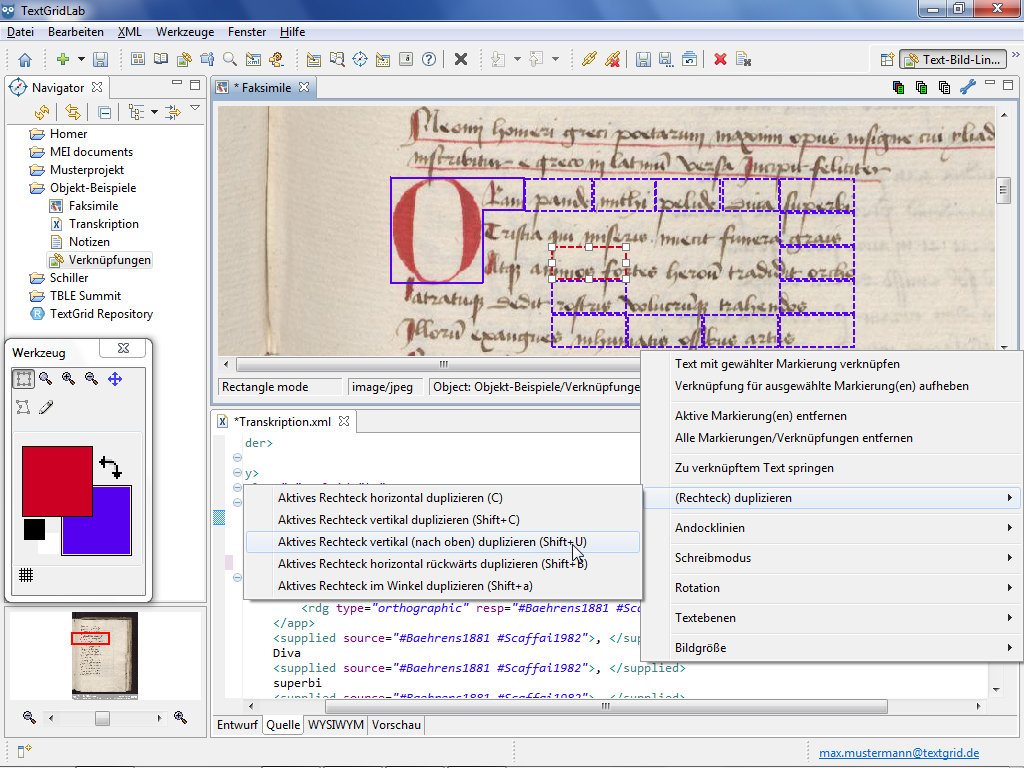 TextGridLab
Datei Bearbeiten XML Werkzeuge Fenster Hilfe
Text-Bild-Lin...
Navigator
Homer
MEI documents
Musterprojekt
Objekt-Beispiele
Faksimile
Transkription
Notizen
Verknüpfungen
Schiller
TBLE Summit
TextGrid Repository
Werkzeug
* Faksimile
opus insigne cui yliad
e greco in latinū versa Incipit feliciter
pande mihi pelide Diva superbi
Tristia qui miseris iniecit funera grais
Atq; animos fortes heroū tradidit orcho
Latratuq; dedit rostris volucrūq; trahendos
Illorū exangues inhumatis ossibus artus
Rectangle mode
image/jpeg
Object: Objekt-Beispiele/Verknüpfunge
Text mit gewählter Markierung verknüpfen
Verknüpfung für ausgewählte Markierung(en) aufheben
Aktive Markierung(en) entfernen
Alle Markierungen/Verknüpfungen entfernen
Zu verknüpftem Text springen
(Rechteck) duplizieren
Andocklinien
Schreibmodus
Rotation
Textebenen
Bildgröße
*Transkription.xml
der>
y>
Aktives Rechteck horizontal duplizieren (C)
Aktives Rechteck vertikal duplizieren (Shift+C)
Aktives Rechteck vertikal (nach oben) duplizieren (Shift+U)
Aktives Rechteck horizontal rückwärts duplizieren (Shift+B)
Aktives Rechteck im Winkel duplizieren (Shift+a)
<rdg type="orthographic" resp="#Baehrens1881 #Sca
</app>
<supplied source="#Baehrens1881 #Scaffai1982">, </su
Diva
<supplied source="#Baehrens1881 #Scaffai1982">, </supplied>
superbi
<supplied source="#Baehrens1881 #Scaffai1982">, </supplied>
Entwurf Quelle WYSIWYM Vorschau
max.mustermann@textgrid.de